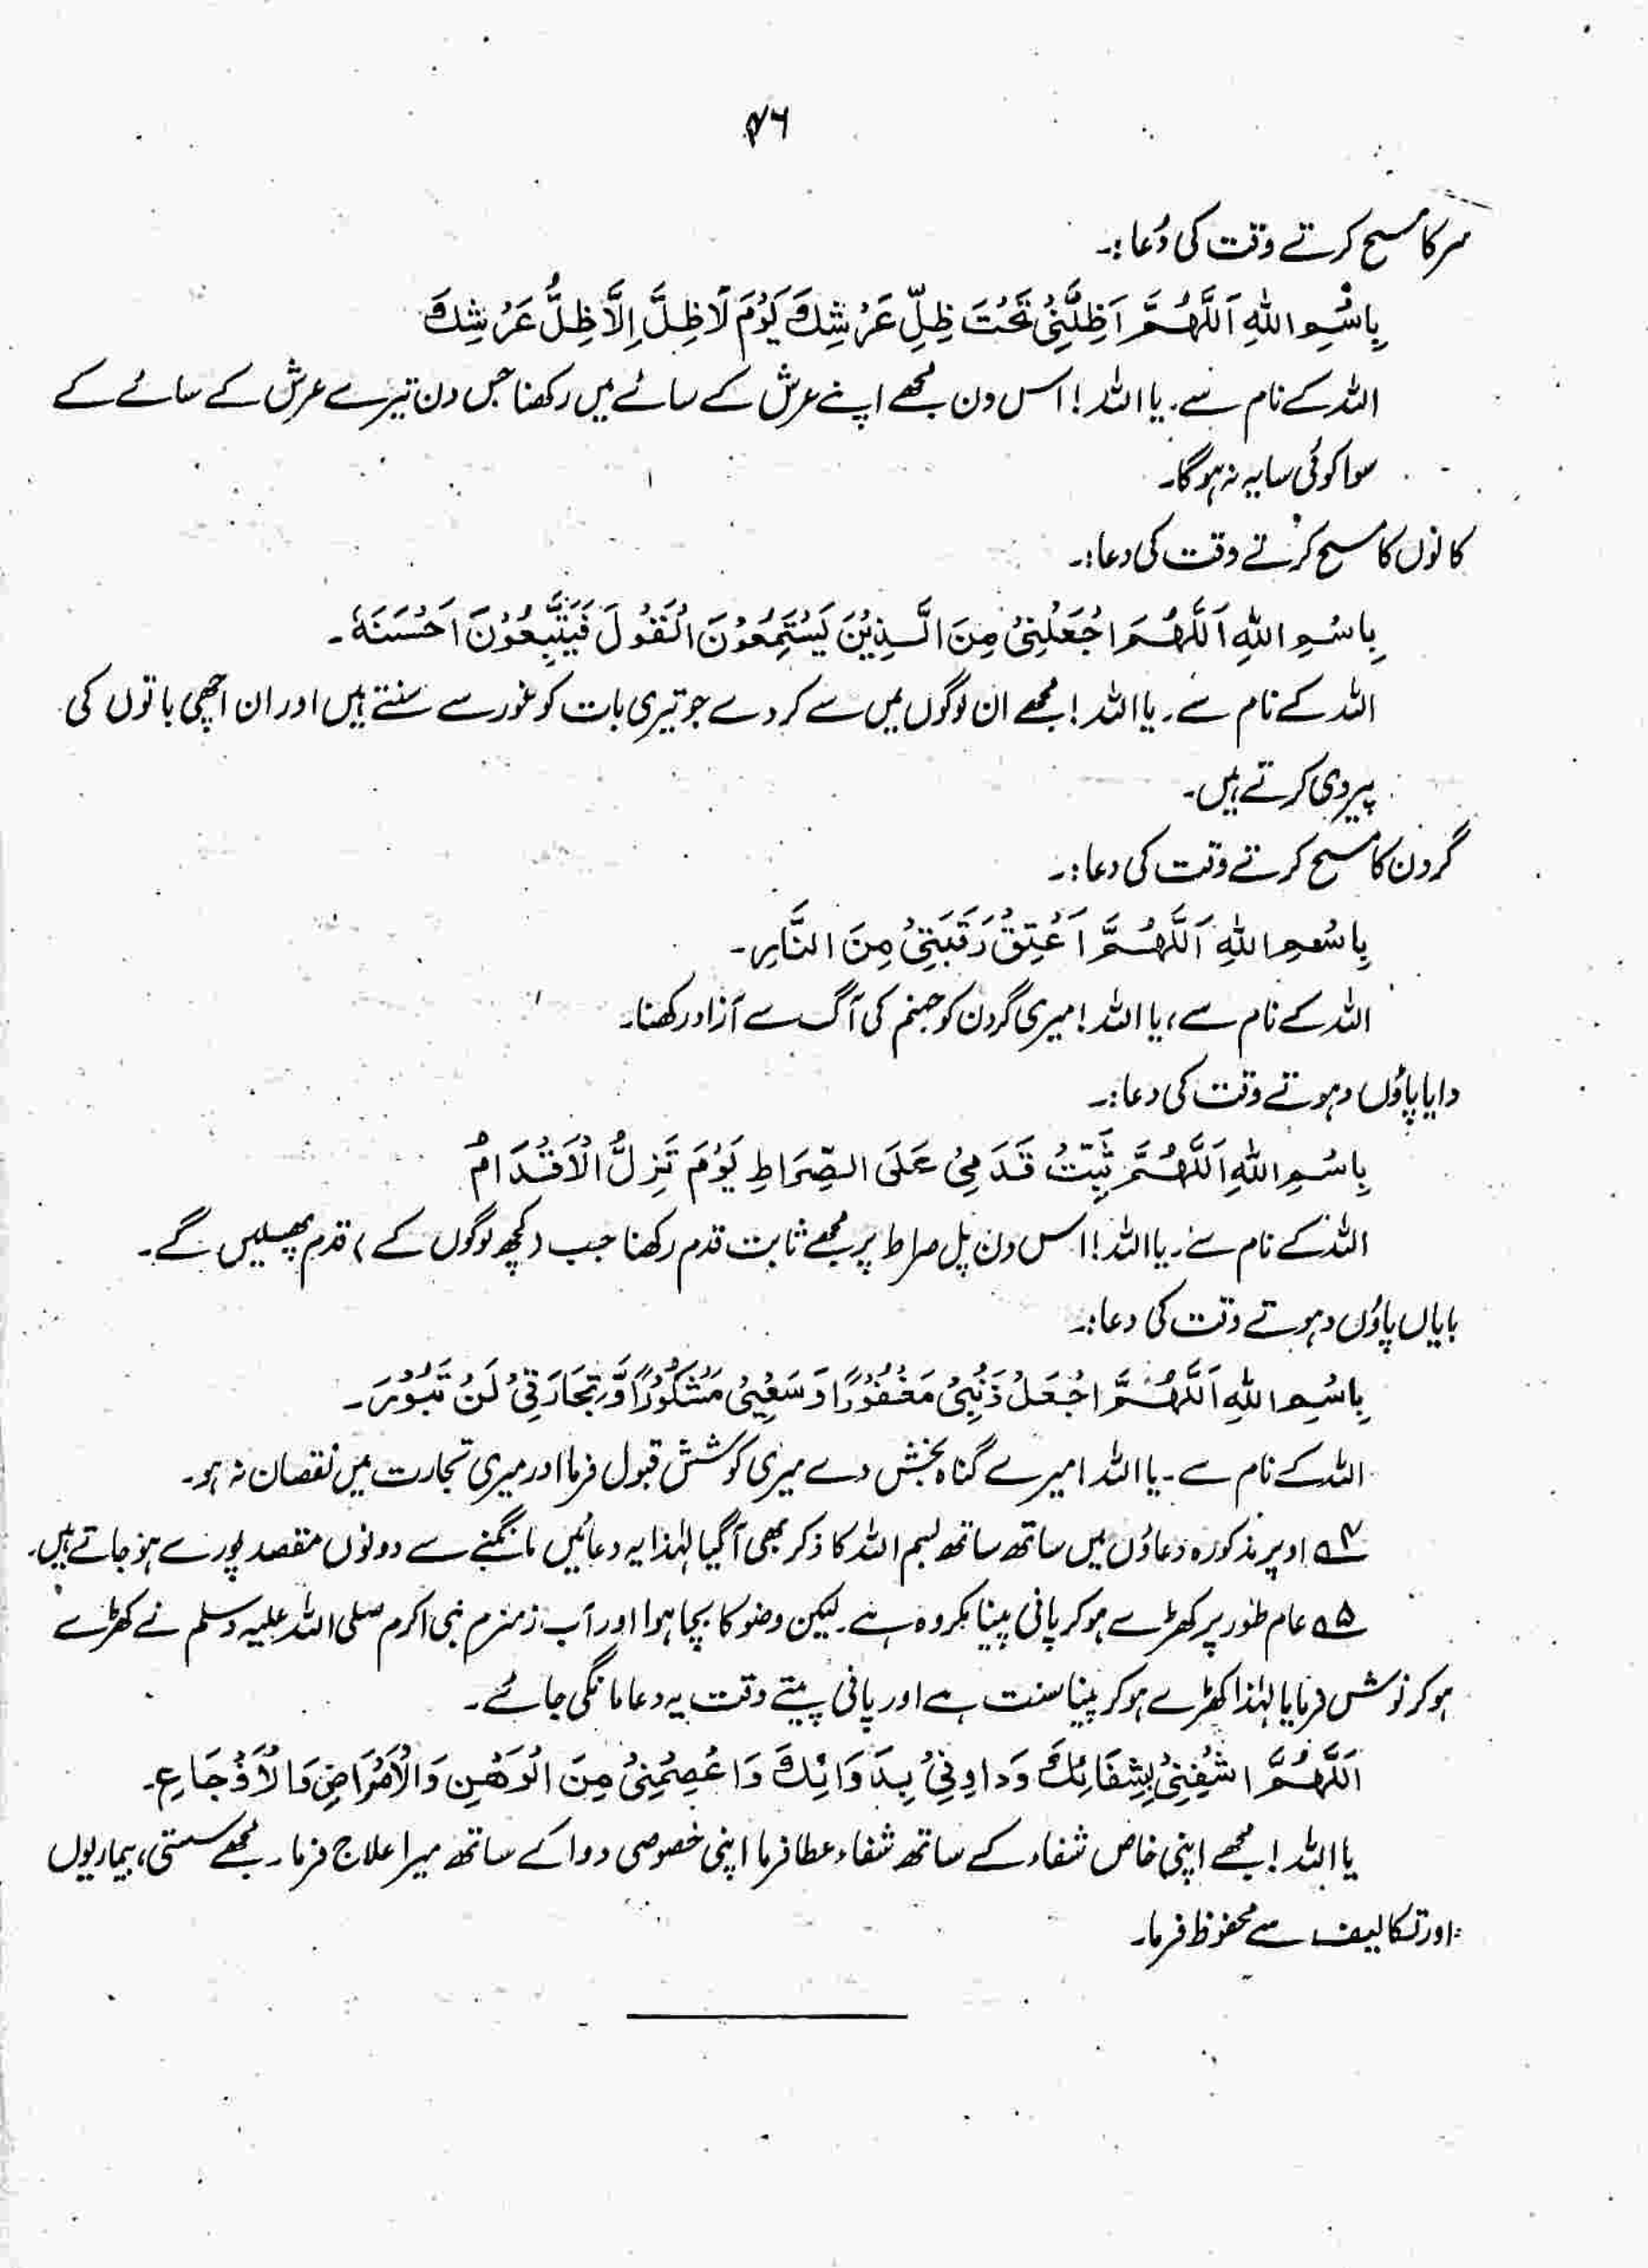 ۴۶
سر کا مسح کرتے وقت کی دُعا :۔
بِاسْمِ اللهِ اَللّٰهُمَّ اَظِلَّنِیْ تَحْتَ ظِلِّ عَرْشِكَ یَوْمَ لَا ظِلَّ اِلَّا ظِلُّ عَرْشِكَ
اللہ کے نام سے۔ یا اللہ! اس دن مجھے اپنے عرش کے سائے میں رکھنا جس دن تیرے عرش کے سائے کے
سوا کوئی سایہ نہ ہوگا۔
کانوں کا مسح کرتے وقت کی دعا:۔
بِاسْمِ اللهِ اَللّٰهُمَّ اجْعَلْنِیْ مِنَ الَّذِیْنَ یَسْتَمِعُوْنَ الْقَوْلَ فَیَتَّبِعُوْنَ اَحْسَنَهٗ۔
اللہ کے نام سے۔ یا اللہ! مجھے ان لوگوں میں سے کردے جو تیری بات کو غور سے سنتے ہیں اور ان اچھی باتوں کی
پیروی کرتے ہیں۔
گردن کا مسح کرتے وقت کی دعا:۔
بِاسْمِ اللهِ اَللّٰهُمَّ اَعْتِقْ رَقَبَتِیْ مِنَ النَّارِ۔
اللہ کے نام سے، یا اللہ! میری گردن کو جہنم کی آگ سے آزاد رکھنا۔
دایا پاؤں دہوتے وقت کی دعا:۔
بِاسْمِ اللهِ اَللّٰهُمَّ ثَبِّتْ قَدَمِیْ عَلَی الصِّرَاطِ یَوْمَ تَزِلُّ الْاَقْدَامُ
اللہ کے نام سے۔ یا اللہ! اس دن پل صراط پر مجھے ثابت قدم رکھنا جب (کچھ لوگوں کے) قدم پھسلیں گے۔
بایاں پاؤں دہوتے وقت کی دعا:۔
بِاسْمِ اللهِ اَللّٰهُمَّ اجْعَلْ ذَنْبِیْ مَغْفُوْرًا وَسَعْیِیْ مَشْكُوْرًا وَّتِجَارَتِیْ لَنْ تَبُوْرَ۔
اللہ کے نام سے۔ یا اللہ! میرے گناہ بخش دے میری کوشش قبول فرما اور میری تجارت میں نقصان نہ ہو۔
۴؎ اوپر مذکورہ دعاؤں میں ساتھ ساتھ بسم اللہ کا ذکر بھی آگیا لہٰذا یہ دعائیں مانگنے سے دونوں مقصد پورے ہوجاتے ہیں۔
۵؎ عام طور پر کھڑے ہوکر پانی پینا مکروہ ہے۔ لیکن وضو کا بچا ہوا اور آب زمزم نبی اکرم صلی اللہ علیہ وسلم نے کھڑے
ہوکر نوش فرمایا لہٰذا کھڑے ہوکر پینا سنت ہے اور پانی پیتے وقت یہ دعا مانگی جائے۔
اَللّٰهُمَّ اشْفِنِیْ بِشِفَائِكَ وَدَاوِنِیْ بِدَوَائِكَ وَاعْصِمْنِیْ مِنَ الْوَهْنِ وَالْاَمْرَاضِ وَالْاَوْجَاعِ۔
یا اللہ! مجھے اپنی خاص شفاء کے ساتھ شفاء عطا فرما اپنی خصوصی دوا کے ساتھ میرا علاج فرما۔ مجھے سستی، بیماریوں
اور تکالیف سے محفوظ فرما۔